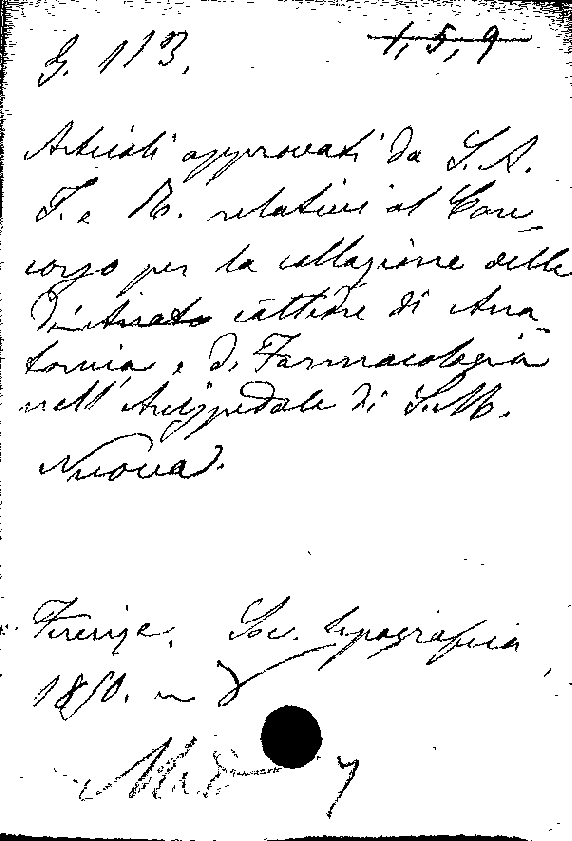 G. 113. 1, 5, 9
Articoli approvati da S. A.
I. e R. relativi al Con-
corso per la collazione delle
Di Anato cattedre di Ana-
tomia e di Farmacologia
nell'Arcispedale di S. M.
Nuova.
Firenze, Soc. tipografica,
1850. in 8